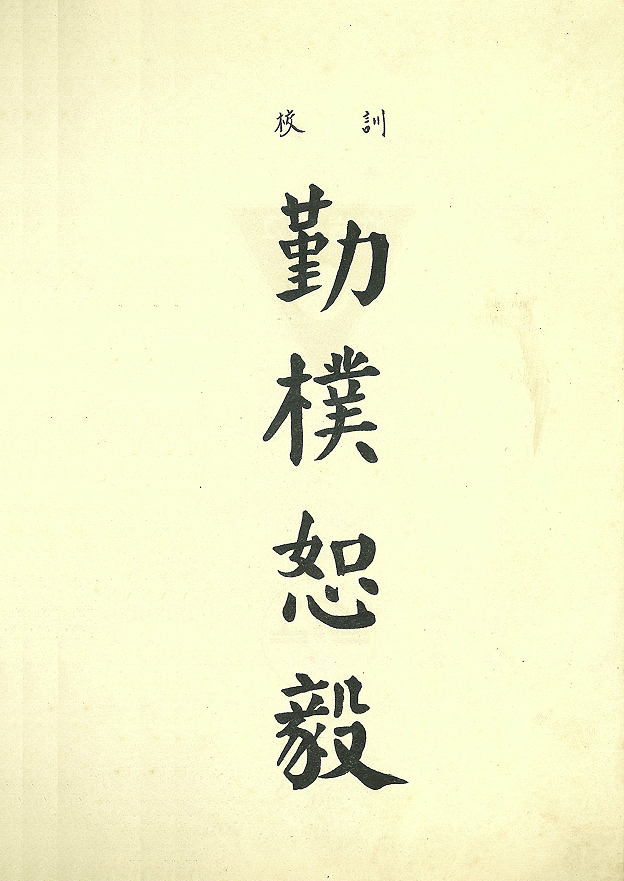 校訓
勤樸恕毅